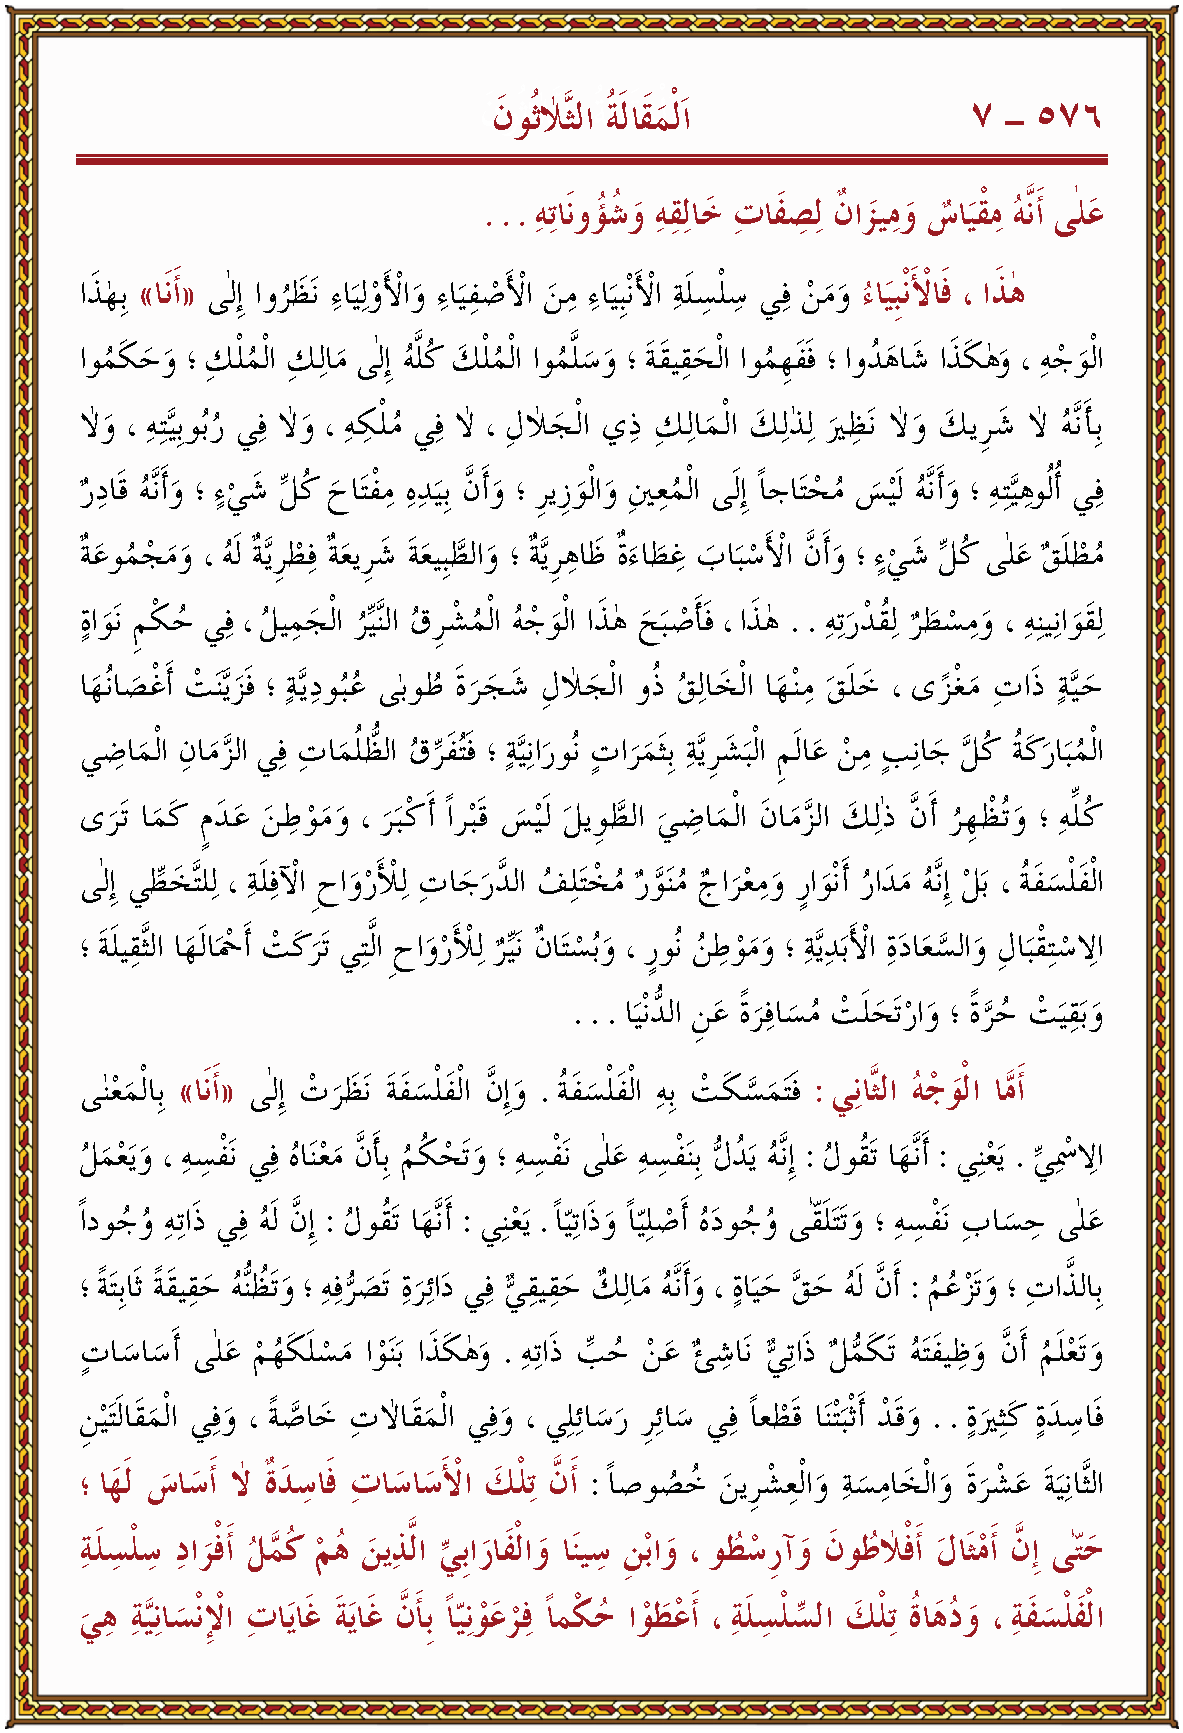 ٥٧٦ – ٧ اَلْمَقَالَةُ الثَّلاٰثُونَ
عَلٰى أَنَّهُ مِقْيَاسٌ وَمِيزَانٌ لِصِفَاتِ خَالِقِهِ وَشُؤُونَاتِهِ . . .
هٰذَا ، فَالْأَنْبِيَاءُ وَمَنْ فِي سِلْسِلَةِ الْأَنْبِيَاءِ مِنَ الْأَصْفِيَاءِ وَالْأَوْلِيَاءِ نَظَرُوا إِلٰى «أَنَا» بِهٰذَا
الْوَجْهِ ، وَهٰكَذَا شَاهَدُوا ؛ فَفَهِمُوا الْحَقِيقَةَ ؛ وَسَلَّمُوا الْمُلْكَ كُلَّهُ إِلٰى مَالِكِ الْمُلْكِ ؛ وَحَكَمُوا
بِأَنَّهُ لاٰ شَرِيكَ وَلاٰ نَظِيرَ لِذٰلِكَ الْمَالِكِ ذِي الْجَلاٰلِ ، لاٰ فِي مُلْكِهِ ، وَلاٰ فِي رُبُوبِيَّتِهِ ، وَلاٰ
فِي أُلُوهِيَّتِهِ ؛ وَأَنَّهُ لَيْسَ مُحْتَاجاً إِلَى الْمُعِينِ وَالْوَزِيرِ ؛ وَأَنَّ بِيَدِهِ مِفْتَاحَ كُلِّ شَيْءٍ ؛ وَأَنَّهُ قَادِرٌ
مُطْلَقٌ عَلٰى كُلِّ شَيْءٍ ؛ وَأَنَّ الْأَسْبَابَ غِطَاءَةٌ ظَاهِرِيَّةٌ ؛ وَالطَّبِيعَةَ شَرِيعَةٌ فِطْرِيَّةٌ لَهُ ، وَمَجْمُوعَةٌ
لِقَوَانِينِهِ ، وَمِسْطَرٌ لِقُدْرَتِهِ . . هٰذَا ، فَأَصْبَحَ هٰذَا الْوَجْهُ الْمُشْرِقُ النَّيِّرُ الْجَمِيلُ ، فِي حُكْمِ نَوَاةٍ
حَيَّةٍ ذَاتِ مَغْزًى ، خَلَقَ مِنْهَا الْخَالِقُ ذُو الْجَلاٰلِ شَجَرَةَ طُوبٰى عُبُودِيَّةٍ ؛ فَزَيَّنَتْ أَغْصَانُهَا
الْمُبَارَكَةُ كُلَّ جَانِبٍ مِنْ عَالَمِ الْبَشَرِيَّةِ بِثَمَرَاتٍ نُورَانِيَّةٍ ؛ فَتُفَرِّقُ الظُّلُمَاتِ فِي الزَّمَانِ الْمَاضِي
كُلِّهِ ؛ وَتُظْهِرُ أَنَّ ذٰلِكَ الزَّمَانَ الْمَاضِيَ الطَّوِيلَ لَيْسَ قَبْراً أَكْبَرَ ، وَمَوْطِنَ عَدَمٍ كَمَا تَرَى
الْفَلْسَفَةُ ، بَلْ إِنَّهُ مَدَارُ أَنْوَارٍ وَمِعْرَاجٌ مُنَوَّرٌ مُخْتَلِفُ الدَّرَجَاتِ لِلْأَرْوَاحِ الْآفِلَةِ ، لِلتَّخَطِّي إِلٰى
الاِسْتِقْبَالِ وَالسَّعَادَةِ الْأَبَدِيَّةِ ؛ وَمَوْطِنُ نُورٍ ، وَبُسْتَانٌ نَيِّرٌ لِلْأَرْوَاحِ الَّتِي تَرَكَتْ أَحْمَالَهَا الثَّقِيلَةَ ؛
وَبَقِيَتْ حُرَّةً ؛ وَارْتَحَلَتْ مُسَافِرَةً عَنِ الدُّنْيَا . . .
أَمَّا الْوَجْهُ الثَّانِي : فَتَمَسَّكَتْ بِهِ الْفَلْسَفَةُ . وَإِنَّ الْفَلْسَفَةَ نَظَرَتْ إِلٰى «أَنَا» بِالْمَعْنٰى
الاِسْمِيِّ . يَعْنِي : أَنَّهَا تَقُولُ : إِنَّهُ يَدُلُّ بِنَفْسِهِ عَلٰى نَفْسِهِ ؛ وَتَحْكُمُ بِأَنَّ مَعْنَاهُ فِي نَفْسِهِ ، وَيَعْمَلُ
عَلٰى حِسَابِ نَفْسِهِ ؛ وَتَتَلَقّٰى وُجُودَهُ أَصْلِيّاً وَذَاتِيّاً . يَعْنِي : أَنَّهَا تَقُولُ : إِنَّ لَهُ فِي ذَاتِهِ وُجُوداً
بِالذَّاتِ ؛ وَتَزْعُمُ : أَنَّ لَهُ حَقَّ حَيَاةٍ ، وَأَنَّهُ مَالِكٌ حَقِيقِيٌّ فِي دَائِرَةِ تَصَرُّفِهِ ؛ وَتَظُنُّهُ حَقِيقَةً ثَابِتَةً ؛
وَتَعْلَمُ أَنَّ وَظِيفَتَهُ تَكَمُّلٌ ذَاتِيٌّ نَاشِئٌ عَنْ حُبِّ ذَاتِهِ . وَهٰكَذَا بَنَوْا مَسْلَكَهُمْ عَلٰى أَسَاسَاتٍ
فَاسِدَةٍ كَثِيرَةٍ . . وَقَدْ أَثْبَتْنَا قَطْعاً فِي سَائِرِ رَسَائِلِي ، وَفِي الْمَقَالاٰتِ خَاصَّةً ، وَفِي الْمَقَالَتَيْنِ
الثَّانِيَةَ عَشْرَةَ وَالْخَامِسَةِ وَالْعِشْرِينَ خُصُوصاً : أَنَّ تِلْكَ الْأَسَاسَاتِ فَاسِدَةٌ لاٰ أَسَاسَ لَهَا ؛
حَتّٰى إِنَّ أَمْثَالَ أَفْلاٰطُونَ وَآرِسْطُو ، وَابْنِ سِينَا وَالْفَارَابِيِّ الَّذِينَ هُمْ كُمَّلُ أَفْرَادِ سِلْسِلَةِ
الْفَلْسَفَةِ ، وَدُهَاةُ تِلْكَ السِّلْسِلَةِ ، أَعْطَوْا حُكْماً فِرْعَوْنِيّاً بِأَنَّ غَايَةَ غَايَاتِ الْإِنْسَانِيَّةِ هِيَ